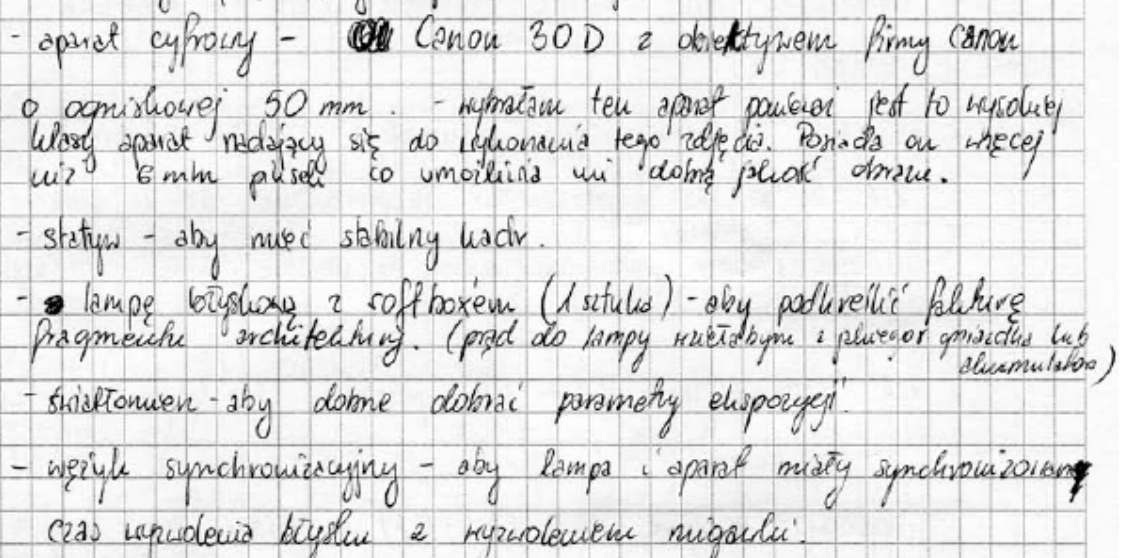 - aparat cyfrowy - Canon 30D z obiektywem firmy Canon
o ogniskowej 50 mm. - wybrałam ten aparat ponieważ jest to wysokiej
klasy aparat nadający się do wykonania tego zdjęcia. Posiada on więcej
niż 6 mln pikseli co umożliwia mi dobrą jakość obrazu.
- statyw - aby mieć stabilny kadr.
- lampę błyskową z softboxem (1 sztuka) - aby podkreślić fakturę
fragmentu architektury. (prąd do lampy miałabym z gniazdka lub
akumulatora)
- światłomierz - aby dobrze dobrać parametry ekspozycji.
- wężyk synchronizacyjny - aby lampa i aparat miały synchronizowany
czas wyzwolenia błysku z wyzwoleniem migawki.